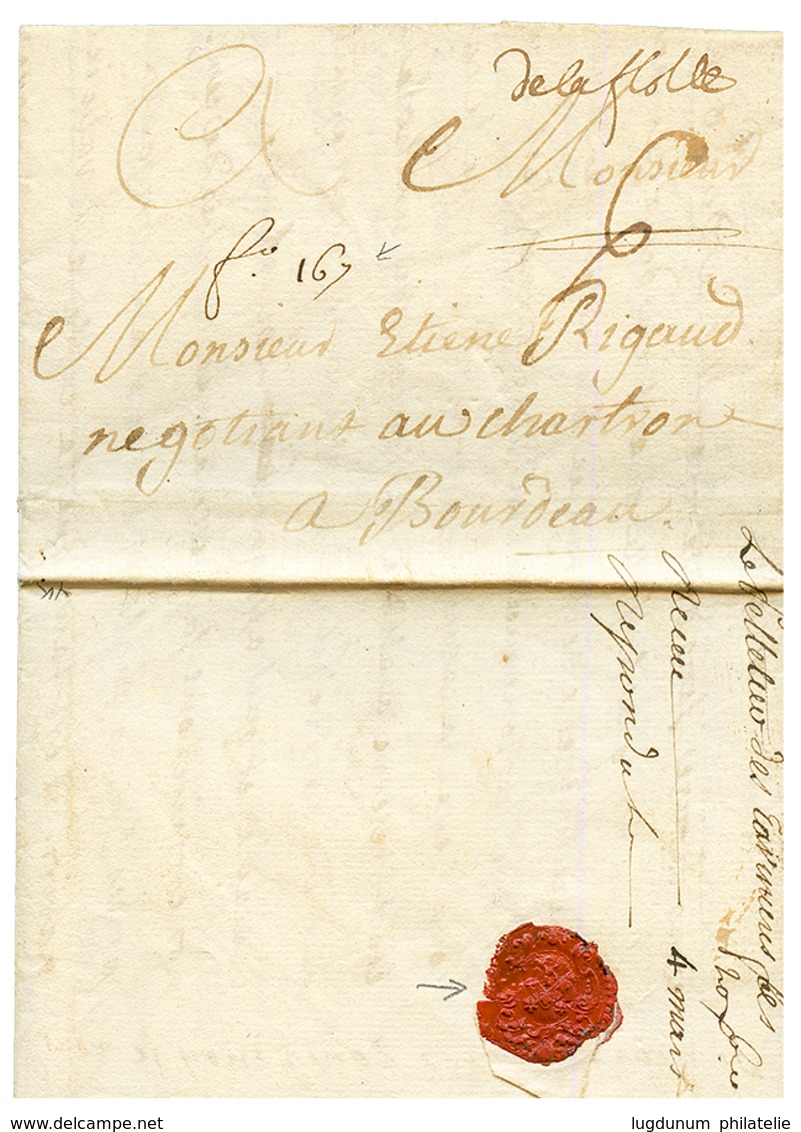 dela flotte
A Monsieur
6
fo. 167
Monsieur Etiene Rigaud.
negotiant au chartron
a Bourdeau.
Le des des
Receu 4 mars
Repondu le
www.delcampe.net
lugdunum philatelie